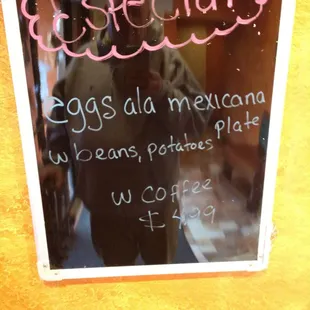 Special
eggs ala mexicana
plate
w beans, potatoes
w coffee
¢ 4.99